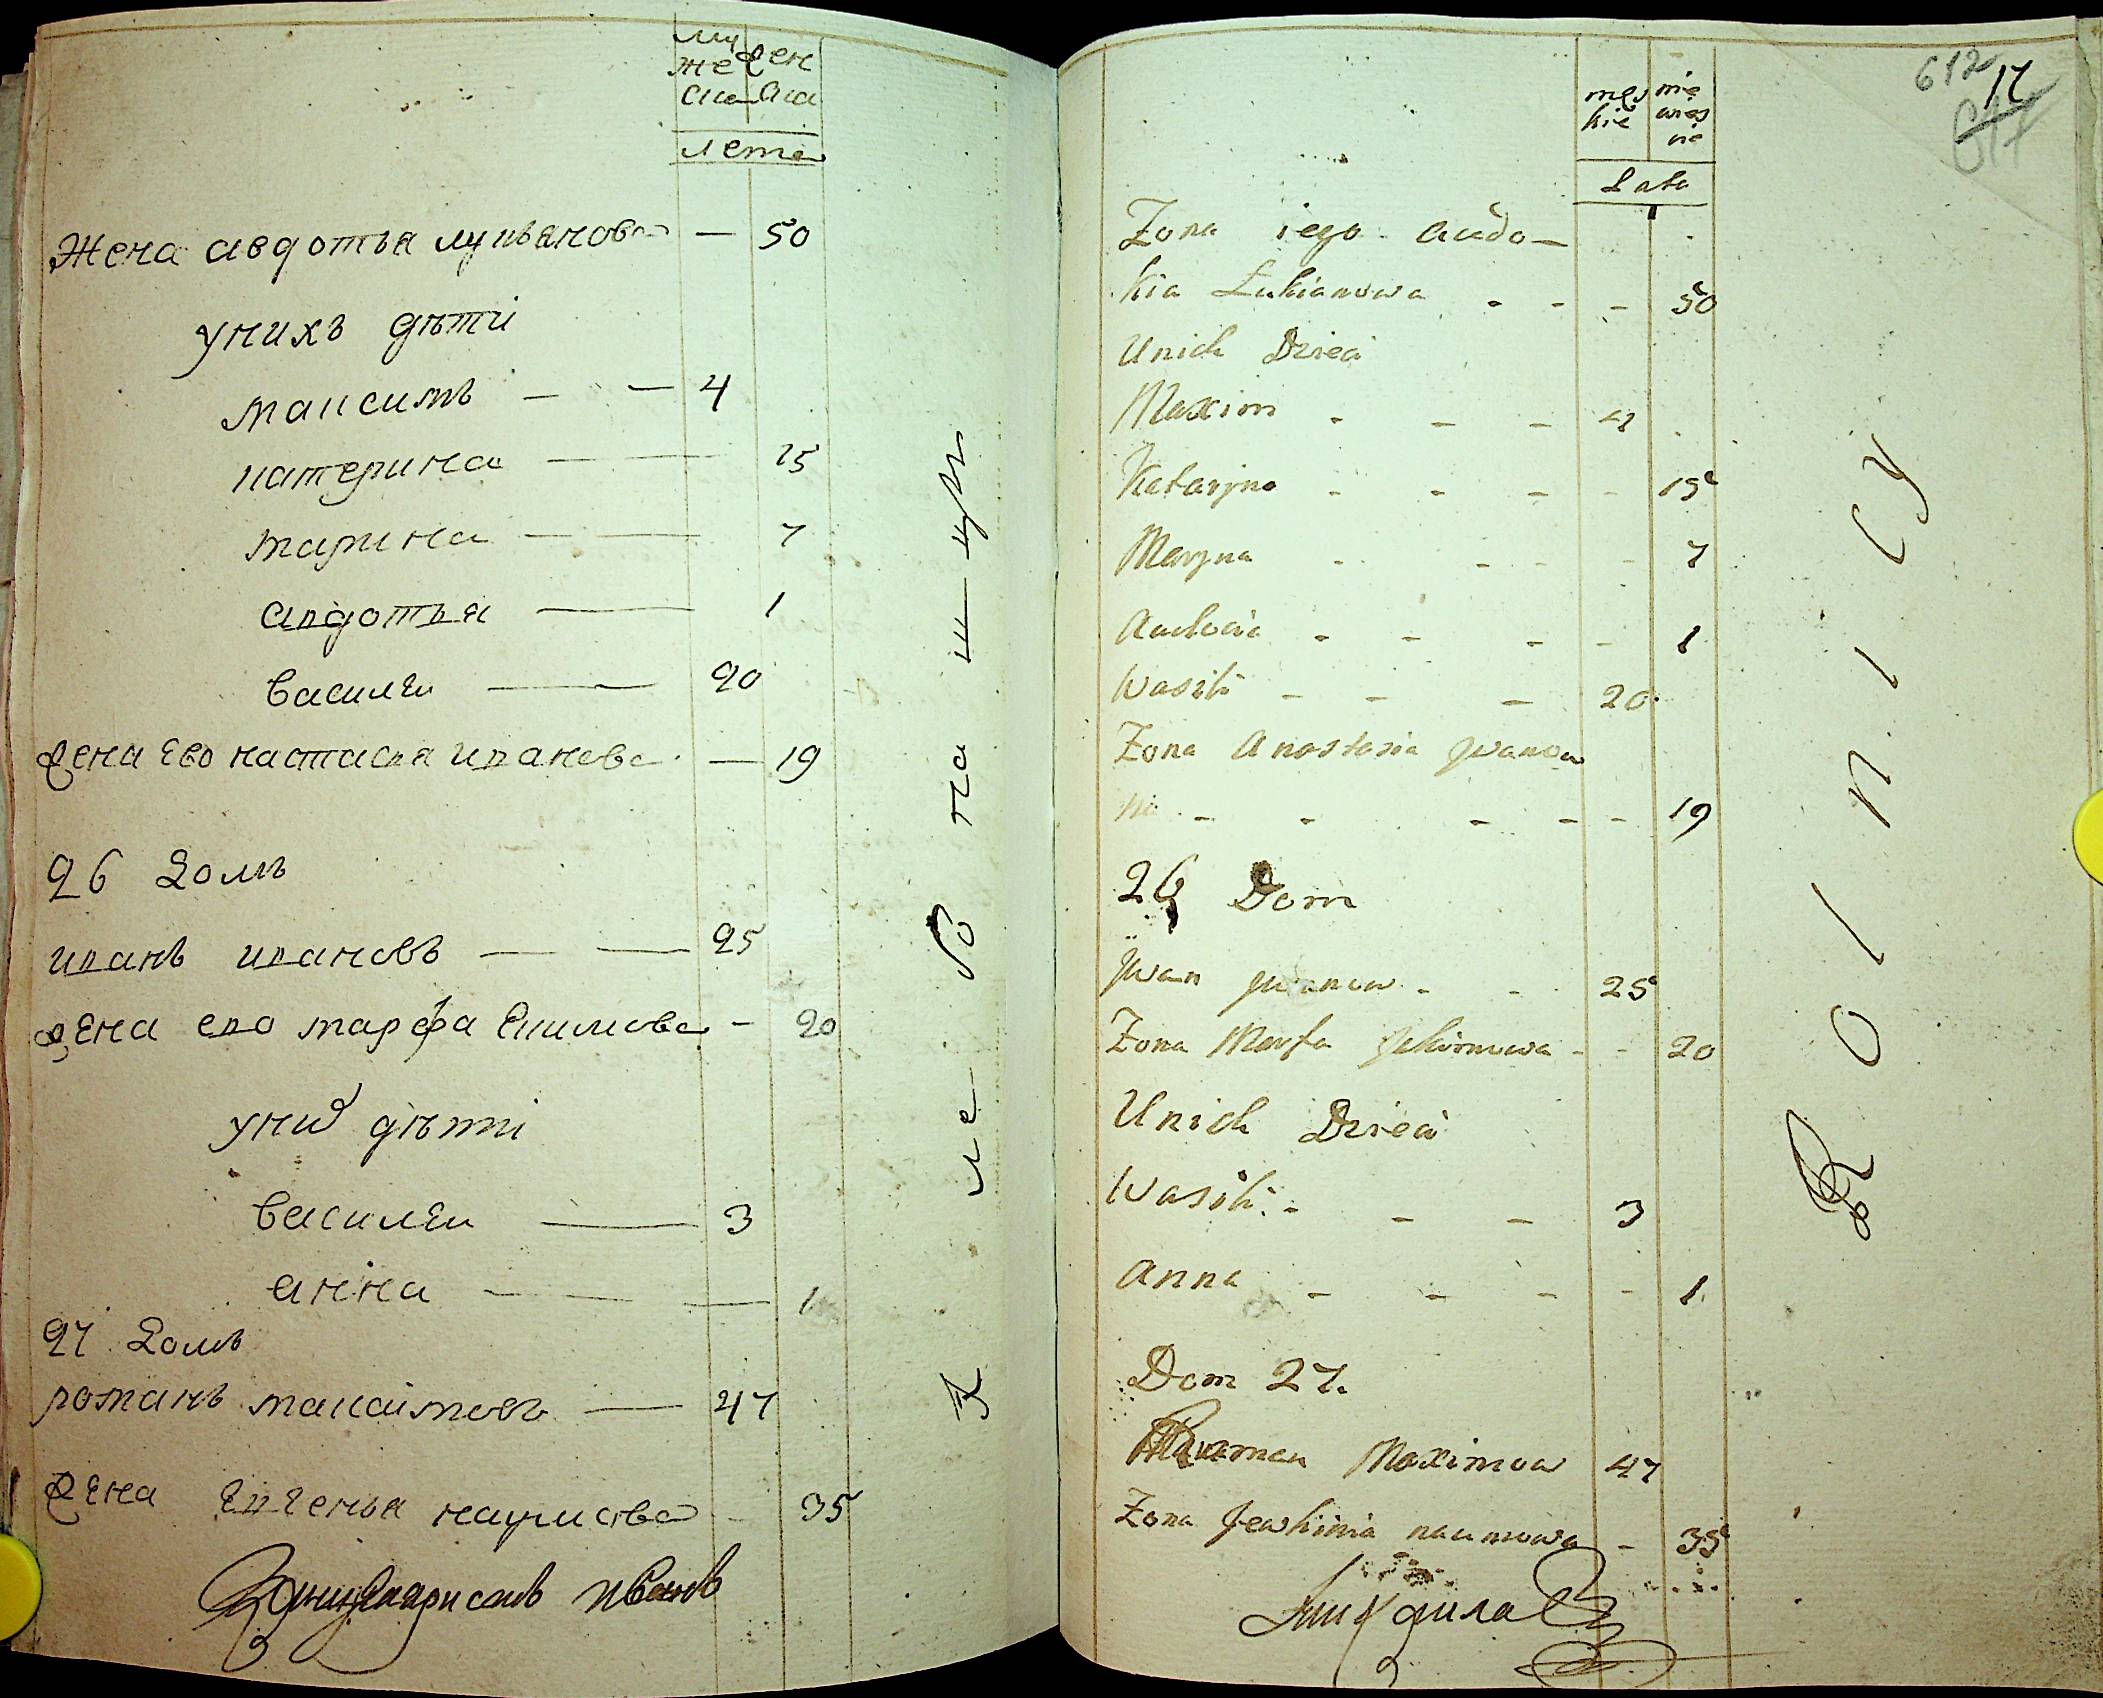 му жен
же ска
ска
лета
Жена авдотья лукьанова — 50
унихъ дѣти
максимъ — — 4
катерина — 15
марина — — 7
авдотья — 1
василеи — 20
жена ево настасья иванова — 19
26 домъ
иванъ ивановъ — — 25
жена ево марфа екимова — 20
уних дѣти
василеи — 3
анна — — — 1
27 домъ
романъ максимовъ — 47
жена евгенья наумова - 35
Ивановъ
męs nie
kie wieś
cie
Lata
Zona iego Audo—
kia Łukianowa - - - 50
Unich Dzieci
Maxim - - - 4
Kataryna - - - - 15
Maryna - - - - 7
Audocia - - - - 1
Wasili - - - 20
Zona Anastasia Jwanow
na - - - - - 19
26 Dom
Jwan Jwanow - - 25
Zona Marfa Jekimowa - - 20
Unich Dzieci
Wasili - - - 3
Anna - - - - 1
Dom 27.
Roman Maximow 47
Zona Jewhinia naumowa - 35
612
17
617